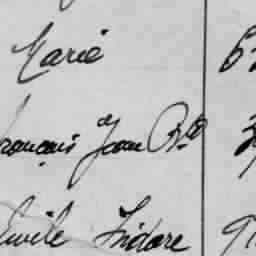 Marie
François Jean Bte
Emile Isidore